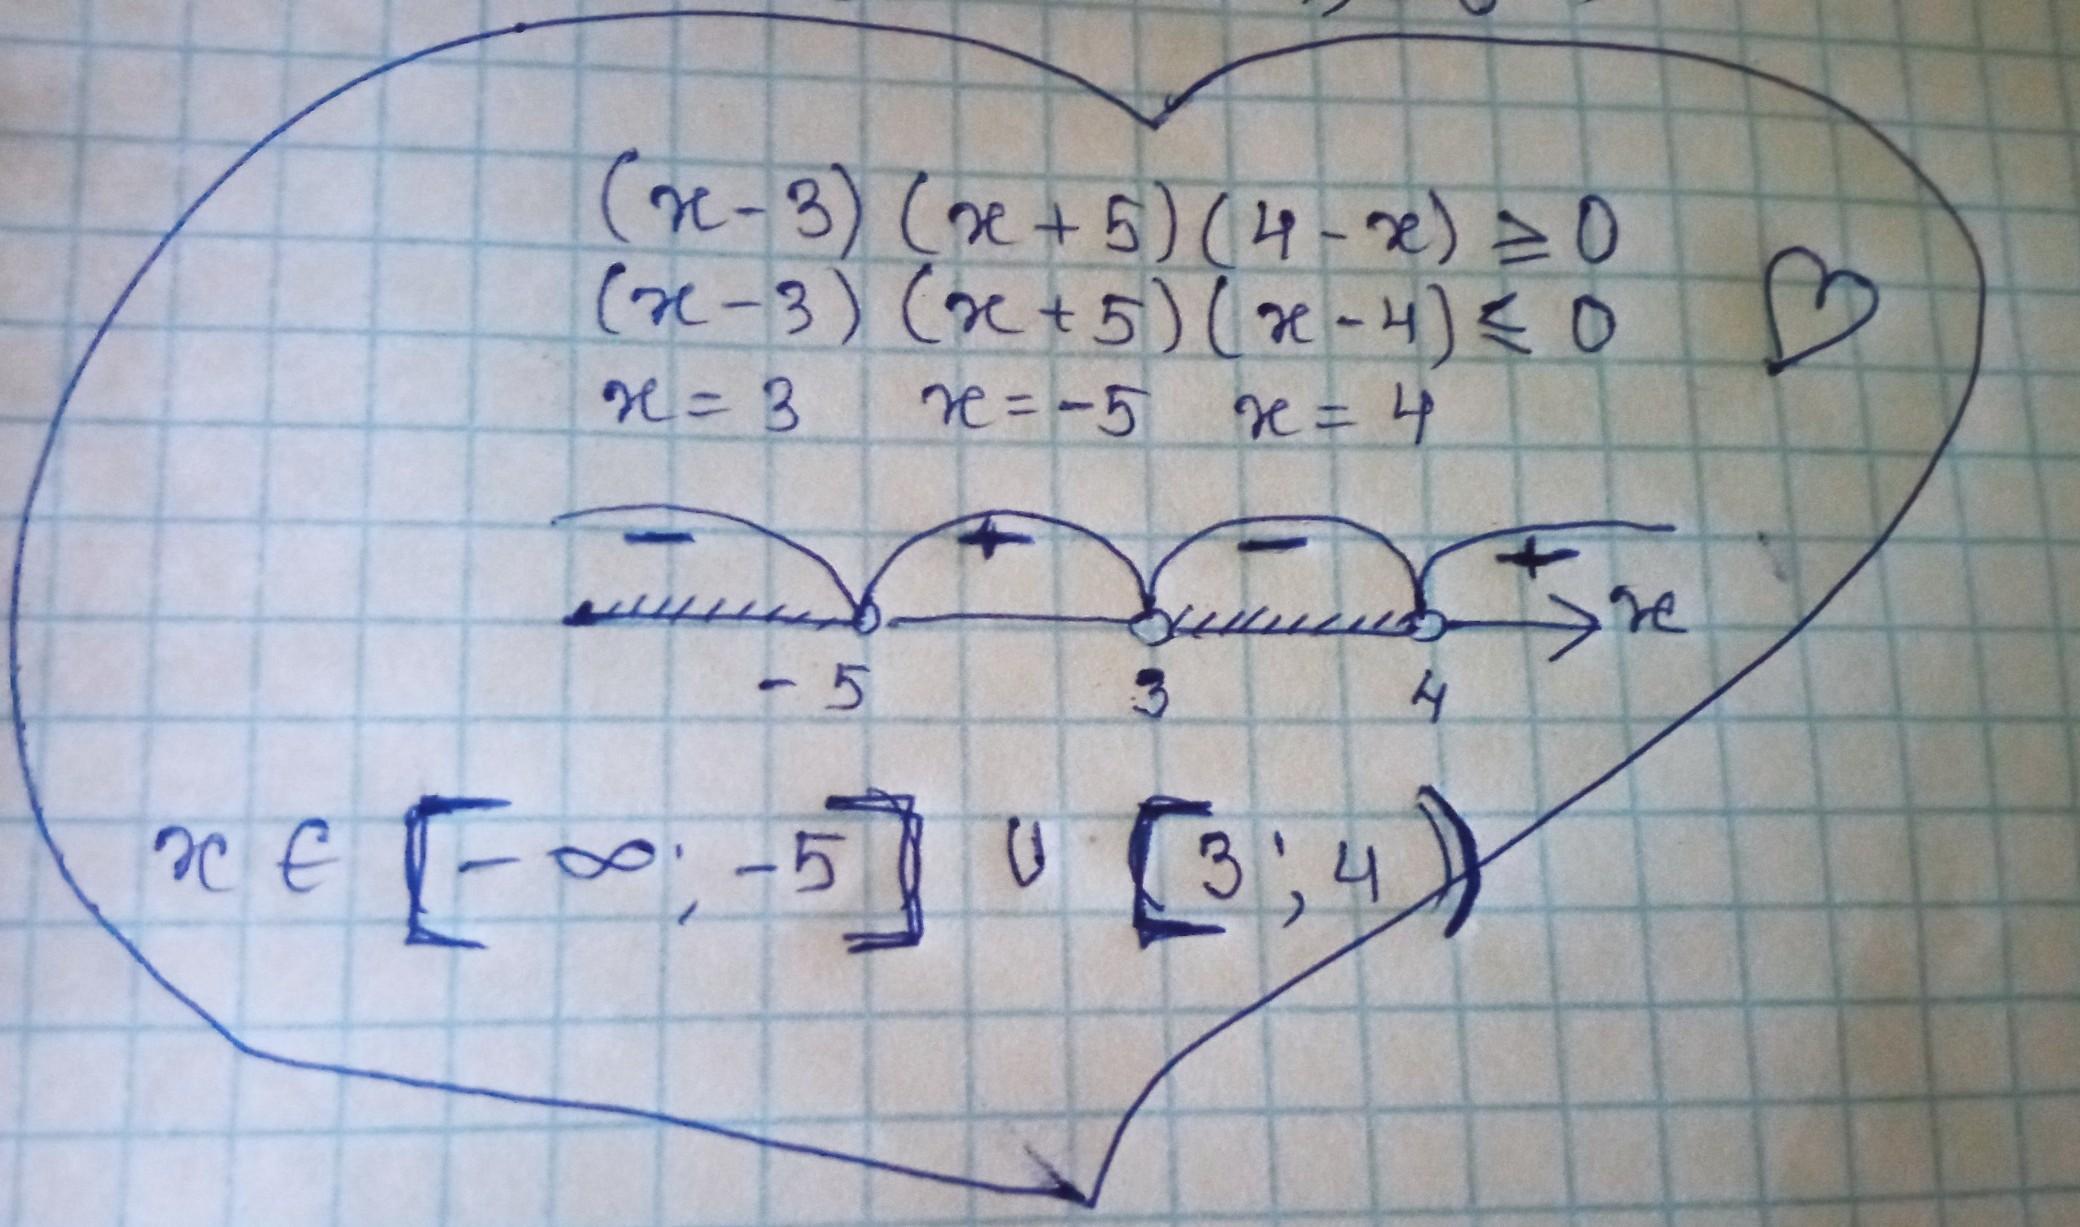 (x-3)(x+5)(4-x)≥0
(x-3)(x+5)(x-4)≤0
x=3 x=-5 x=4
- + - +
x
-5 3 4
x∈[-∞;-5]∪[3;4)